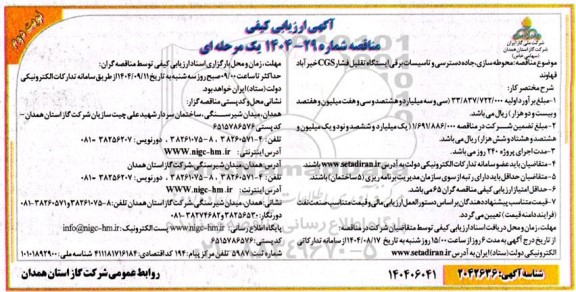 نوبت دوم
آگهی ارزیابی کیفی
مناقصه شماره ۲۹-۱۴۰۴ یک مرحله ای
شرکت ملی گاز ایران
شرکت گاز استان همدان
(سهامی خاص)
موضوع مناقصه: محوطه سازی، جاده دسترسی و تاسیسات برقی ایستگاه تقلیل فشار CGS خیر آباد نهاوند
شرح مختصر کار:
۱- مبلغ برآورد اولیه ۳۳/۸۳۷/۷۲۲/۰۰۰ (سی و سه میلیارد و هشتصد و سی و هفت میلیون و هفتصد و بیست و دو هزار) ریال می باشد.
۲- مبلغ تضمین شرکت در مناقصه ۱/۶۹۱/۸۸۶/۰۰۰ (یک میلیارد و ششصد و نود و یک میلیون و هشتصد و هشتاد و شش هزار) ریال می باشد.
۳- مدت اجرای پروژه ۲۴۰ روز می باشد.
۴- متقاضیان باید عضو سامانه تدارکات الکترونیکی دولت به آدرس www.setadiran.ir باشند.
۵- متقاضیان حداقل باید دارای رتبه از سوی سازمان مدیریت برنامه ریزی (۵ ساختمان) باشند.
۶- حداقل امتیاز ارزیابی کیفی مناقصه گران ۶۵ می باشد.
۷- قیمت متناسب پیشنهاد دهندگان بر اساس دستورالعمل ارزیابی مالی و قیمت متناسب صنعت نفت (فرایند دامنه قیمت) تعیین می گردد.
مهلت، زمان و محل دریافت اسناد ارزیابی کیفی توسط متقاضیان شرکت در مناقصه:
از تاریخ درج آگهی به مدت ۶ روز از ساعت ۱۵/۰۰ روز شنبه به تاریخ ۱۴۰۴/۰۸/۱۷ از سامانه تدارکاتی الکترونیکی دولت (ستاد) ایران به آدرس www.setadiran.ir
مهلت، زمان و محل بارگزاری اسناد ارزیابی کیفی توسط مناقصه گران:
حداکثر تا ساعت ۰۹/۰۰ صبح روز سه شنبه به تاریخ ۱۴۰۴/۰۹/۱۱ از طریق سامانه تدارکات الکترونیکی دولت (ستاد) ایران خواهد بود.
نشانی محل و کدپستی مناقصه گزار:
همدان، میدان شیر سنگی، ساختمان سردار شهید علی چیت سازیان شرکت گاز استان همدان - کدپستی ۶۵۱۵۷۸۶۵۷۶
تلفن: ۴-۳۸۲۶۰۵۷۱، ۸-۳۸۲۶۱۰۷۵، دورنویس: ۳۸۲۵۶۲۰۷-۰۸۱
آدرس اینترنتی: WWW.nigc-hm.ir آدرس: همدان میدان شیرسنگی شرکت گاز استان همدان
تلفن: ۴-۳۸۲۶۰۵۷۱، ۸-۳۸۲۶۱۰۷۵، دورنویس: ۳۸۲۵۶۲۰۷-۰۸۱
آدرس اینترنتی: WWW.nigc-hm.ir
پایگاه اطلاع رسانی: www.nigc-hm.ir پست الکترونیک: info@nigc-hm.ir
کد پستی: ۶۵۱۵۷۸۶۵۷۶
شناسه آگهی: ۲۰۴۲۶۳۶
۱۴۰۴۰۶۰۴۱
روابط عمومی شرکت گاز استان همدان